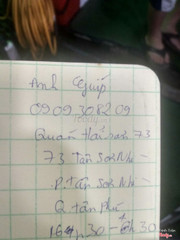 Anh Quíp
0909.3082.09
Quán Hải sản 73
73 Tân Sơn Nhì
P. Tân Sơn Nhì
Q Tân Phú
16h,30 - 30